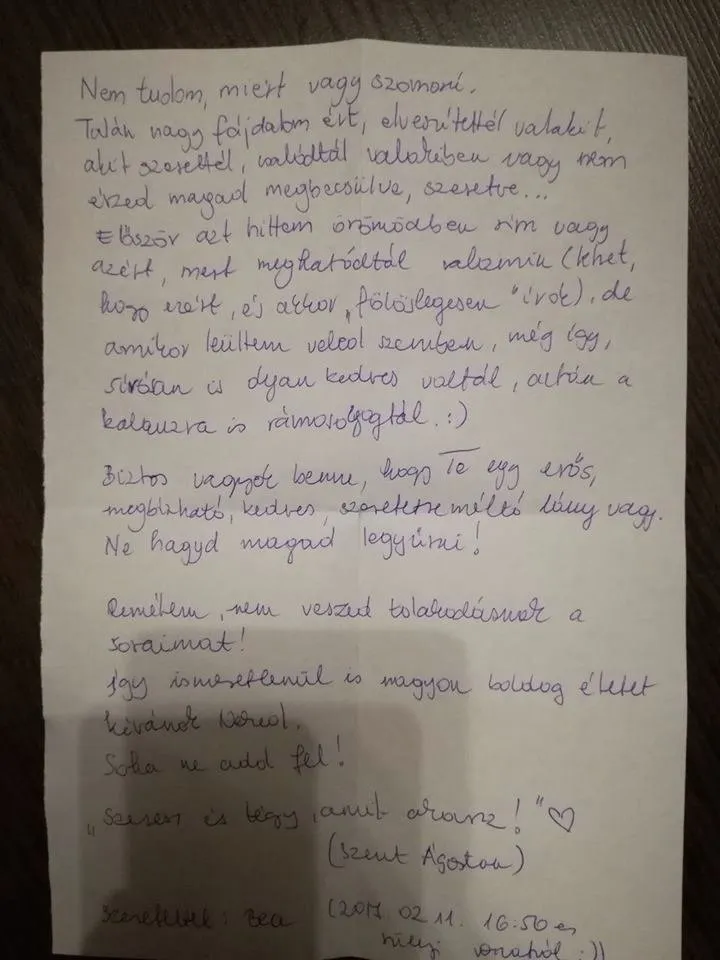 Nem tudom, miért vagy szomorú.
Talán nagy fájdalom ért, elveszítettél valakit,
akit szerettél, csalódtál valakiben vagy nem
érzed magad megbecsülve, szeretve...
Először azt hittem örömödben sírsz vagy
azért, mert meghatódtál valamin (lehet,
hogy ezért, és akkor „fölöslegesen" írok), de
amikor leültem veled szemben, még így,
sírósan is olyan kedves voltál, aztán a
kalauzra is rámosolyogtál. :)
Biztos vagyok benne, hogy Te egy erős,
megbízható, kedves, szeretetreméltó lány vagy.
Ne hagyd magad legyűrni!
Remélem, nem veszed tolakodásnak a
soraimat!
Így ismeretlenül is nagyon boldog életet
kívánok Neked.
Soha ne add fel!
„Szeress és tégy, amit akarsz!" ♡
(Szent Ágoston)
Szeretettel: Bea (2017. 02. 11. 16:50-es
vonatról :))